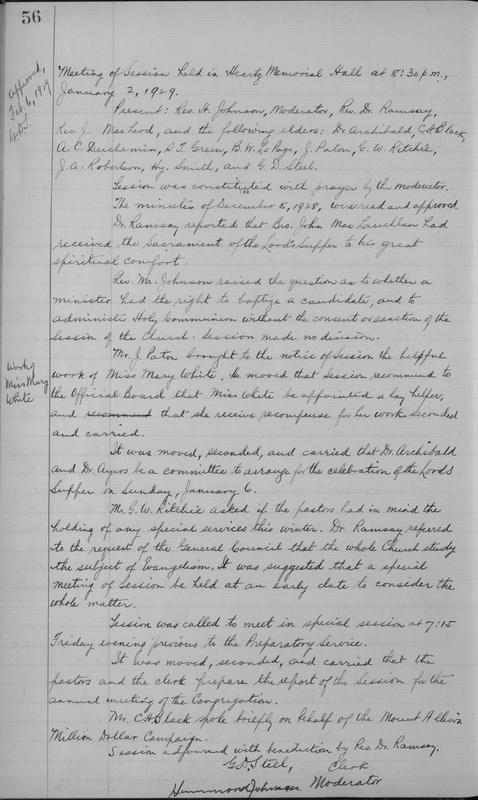 56
approved,
Feb. 6, 1929
Meeting of Session held in Heartz Memorial Hall at 8:30 p.m.,
January 2, 1929.
Present: Rev. H. Johnson, Moderator, Rev. Dr. Ramsay,
Rev. J. MacLeod, and the following elders: Dr. Archibald, C H Black,
A. C. Duchemin, S T Green, B. W. LePage, J. Paton, G. W. Ritchie,
J. A. Robertson, Hy. Smith, and G. D. Steel.
Session was constituted with prayer by the Moderator.
The minutes of December 5, 1928, were read and approved.
Dr. Ramsay reported that Bro. John MacLauchlan had
received the Sacrament of the Lord's Supper to his great
spiritual comfort.
Rev. Mr. Johnson raised the question as to whether a
minister had the right to baptize a candidate, and to
administer Holy Communion without the consent or sanction of the
Session of the Church. Session made no decision.
Work of
Miss Mary
White
Mr. J. Paton brought to the notice of Session the helpful
work of Miss Mary White. He moved that Session recommend to
the Official Board that Miss White be appointed a lay helper,
and recommend that she receive recompense for her work. Seconded
and carried.
It was moved, seconded, and carried that Dr. Archibald
and Dr. Ayers be a committee to arrange for the celebration of the Lord's
Supper on Sunday, January 6.
Mr. G. W. Ritchie asked if the pastors had in mind the
holding of any special services this winter. Dr. Ramsay referred
to the request of the General Council that the whole Church study
the subject of Evangelism. It was suggested that a special
meeting of Session be held at an early date to consider the
whole matter.
Session was called to meet in special session at 7:15
Friday evening previous to the Preparatory Service.
It was moved, seconded, and carried that the
pastors and the clerk prepare the report of the Session for the
annual meeting of the Congregation.
Mr. C H Black spoke briefly on behalf of the Mount Allison
Million Dollar Campaign.
Session adjourned with benediction by Rev. Dr. Ramsay.
G D. Steel, Clerk
Hammond Johnson Moderator